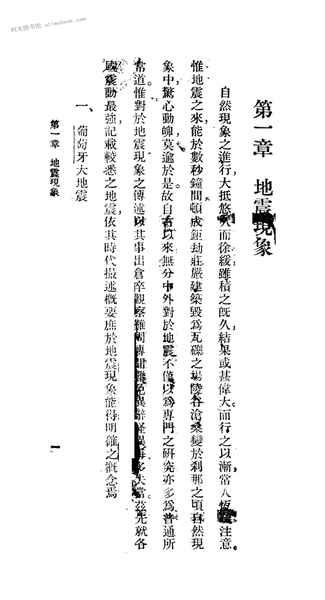 第一章 地震現象
自然現象之進行大抵悠久而徐緩雖積之旣久結果或甚偉大而行之以漸常人恆注意。
惟地震之來能於數秒鐘間頓成鉅劫莊嚴建築毀爲瓦礫之場陵谷滄桑變於剎那之頃自然現
象中驚心動魄莫逾於是。故自古以來無分中外對於地震不僅以爲專門之研究亦多爲普通所
常道。惟對於地震現象之傳述以其事出倉卒觀察難周傳聞異辭每多失當茲先就各
震動最強記載較悉之地震依其時代描述概要庶於地震現象能得明確之概念焉
一、葡萄牙大地震
第一章 地震現象
一